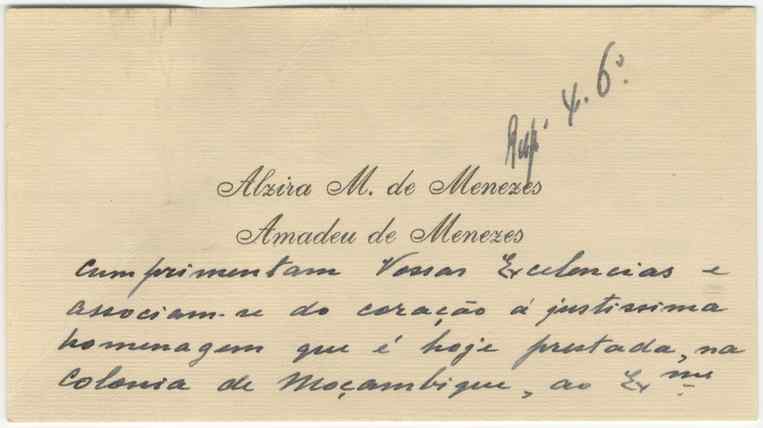 Resp. 4.6º.
Alzira M. de Menezes
Amadeu de Menezes
cumprimentam Vossas Excelencias e
associam-se do coração á justissima
homenagem que é hoje prestada, na
colonia de Moçambique, ao Exmo